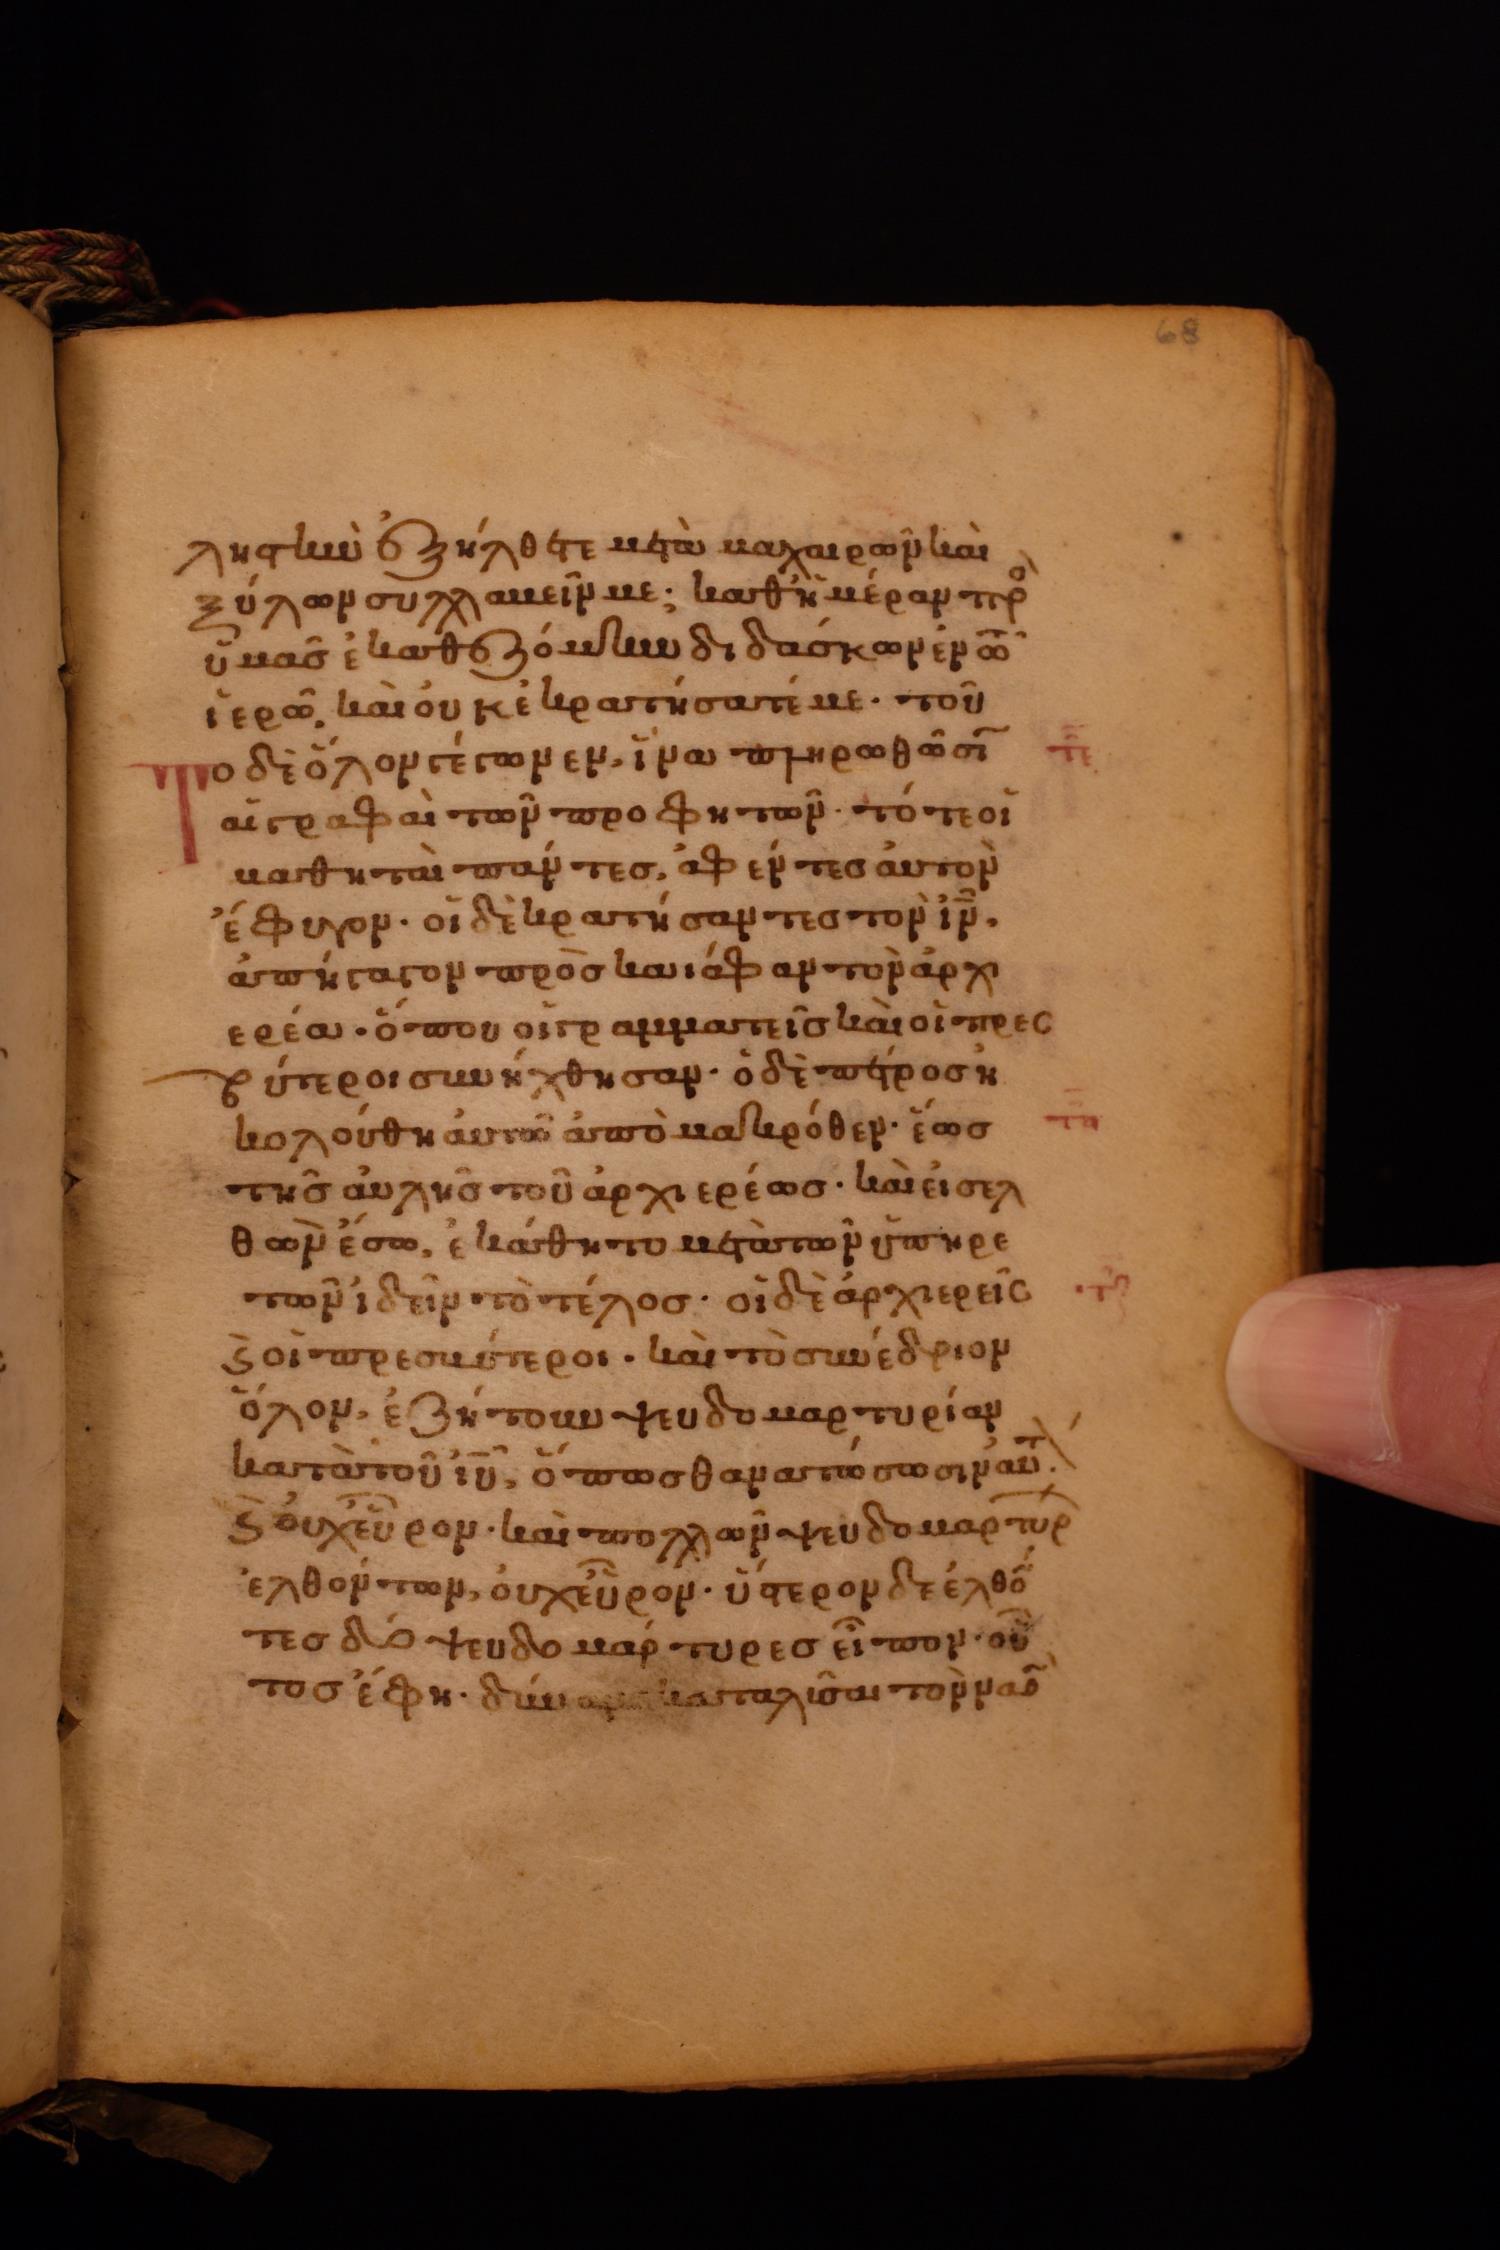 68
ληστὴν ἐξήλθετε μετὰ μαχαιρῶν καὶ
ξύλων συλλαβεῖν με; καθ ἡμέραν πρὸ
ὑμᾶς ἐκαθεζόμην διδάσκων ἐν τῶ
ἱερῶ, καὶ οὐκ ἐκρατήσατέ με· τοῦ
το δὲ ὅλον γέγωνεν, ἵνα πληρωθῶσῖ
αἱ γραφαὶ τῶν προφητῶν· τότε οἱ
μαθηταὶ πάντες, ἀφέντες αὐτὸν
ἔφυγον· οἱ δὲ κρατήσαντες τὸν ιν̅,
ἀπήγαγον πρὸς καιάφαν τὸν ἀρχι
ερέα· ὅπου οἱ γραμματεῖς καὶ οἱ πρεσ
βύτεροι συνήχθησαν· ὁ δὲ πέτρος ἠ
κολούθη αὐτῶ ἀπὸ μακρόθεν· ἕως
τῆς αὐλῆς τοῦ ἀρχιερέως· καὶ εἰσελ
θὼν ἔσω, ἐκάθητο μετὰ τῶν ὑπηρε
τῶν ἰδεῖν τὸ τέλος· οἱ δὲ ἀρχιερεῖς
ϗ οἱ πρεσβύτεροι· καὶ τὸ συνέδριον
ὅλον, ἐζήτουν ψευδομαρτυρίαν
κατὰ τοῦ ιυ̅, ὅπως θανατώσωσιν αὐτ·
ϗ οὐχ εὗρον· καὶ πολλῶν ψευδομαρτύρ
ἐλθόντων, οὐχ εὗρον· ὕστερον δὲ ἐλθό
τες δύο ψευδομάρτυρες εἶπον· οὗ
τος ἔφη· δύναμαι καταλῦσαι τὸν ναὸ
τε̅
τη̅